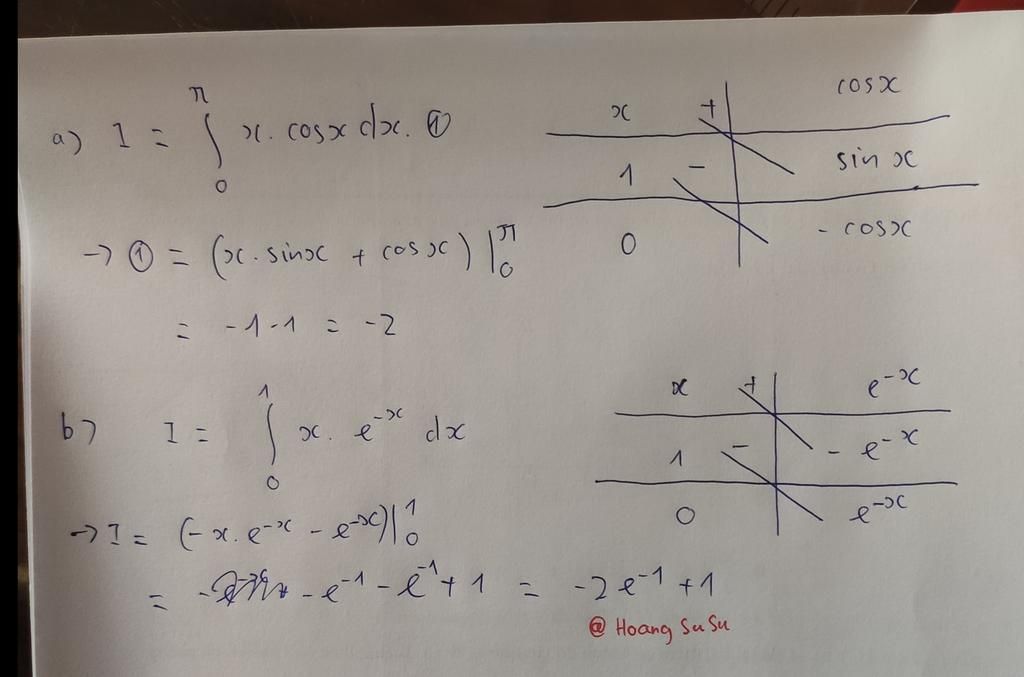 a) I = ∫₀^π x. cosx dx. ①
x + cosx
1 - sin x
0 - cosx
→ ① = (x. sinx + cosx) |₀^π
= -1-1 = -2
b) I = ∫₀¹ x. e^-x dx
x + e^-x
1 - - e^-x
0 e^-x
→ I = (-x. e^-x - e^-x)|₀¹
= - e^-1 - e^-1 + 1 = -2e^-1 + 1
@ Hoang SuSu